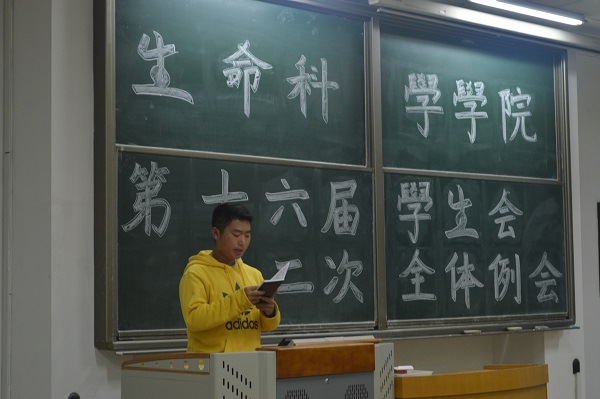 生命科學學院
第十六届學生会
二次全体例会
adidas